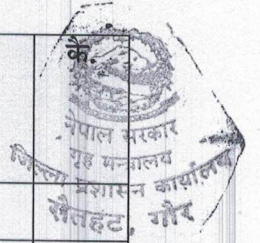 कै.
नेपाल सरकार
गृह मन्त्रालय
जिल्ला प्रशासन कार्यालय
रौतहट, गौर